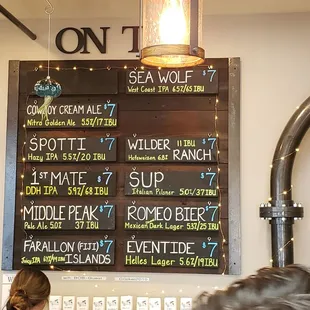 ON T
SEA WOLF $7
West Coast IPA 6.5%/65 IBU
COWBOY CREAM ALE $7
Nitro Golden Ale 5.5%/17 IBU
SPOTTI $7
Hazy IPA 5.5%/20 IBU
1ST MATE $7
DDH IPA 5.9%/68 IBU
MIDDLE PEAK $7
Pale Ale 5.0% 37 IBU
FARALLON (FIJI) $7
ISLANDS
WILDER 11 IBU $7
RANCH
Hefeweizen 6.8%
SUP $7
Italian Pilsner 5.0%/37 IBU
ROMEO BIER $7
Mexican Dark Lager 5.5%/25 IBU
EVENTIDE $7
Helles Lager 5.6%/19 IBU